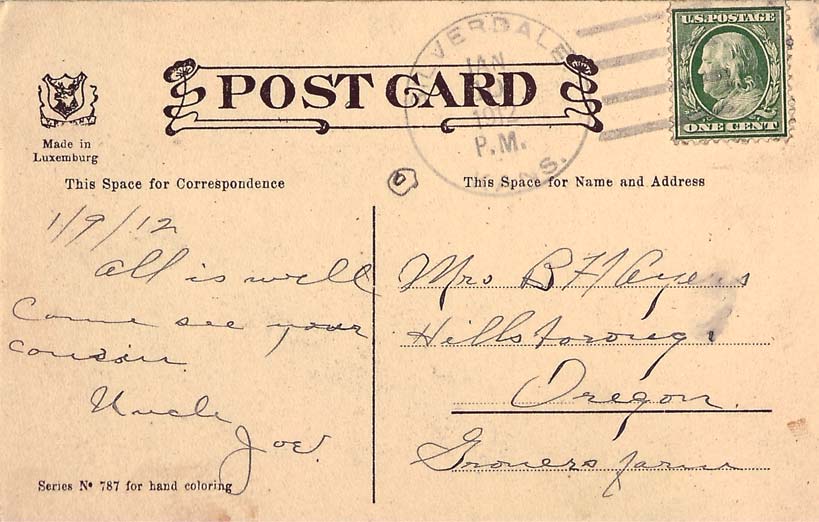 U.S. POSTAGE
ONE CENT
SILVERDALE
JAN
1912
P.M.
KANS.
POST CARD
Made in
Luxemburg
This Space for Correspondence
This Space for Name and Address
1/9/12
All is well
Come see your
cousin.
Uncle
Joe.
Mrs B F Ayers
Hillsborough
Oregon.
Groners farm
Series No 787 for hand coloring